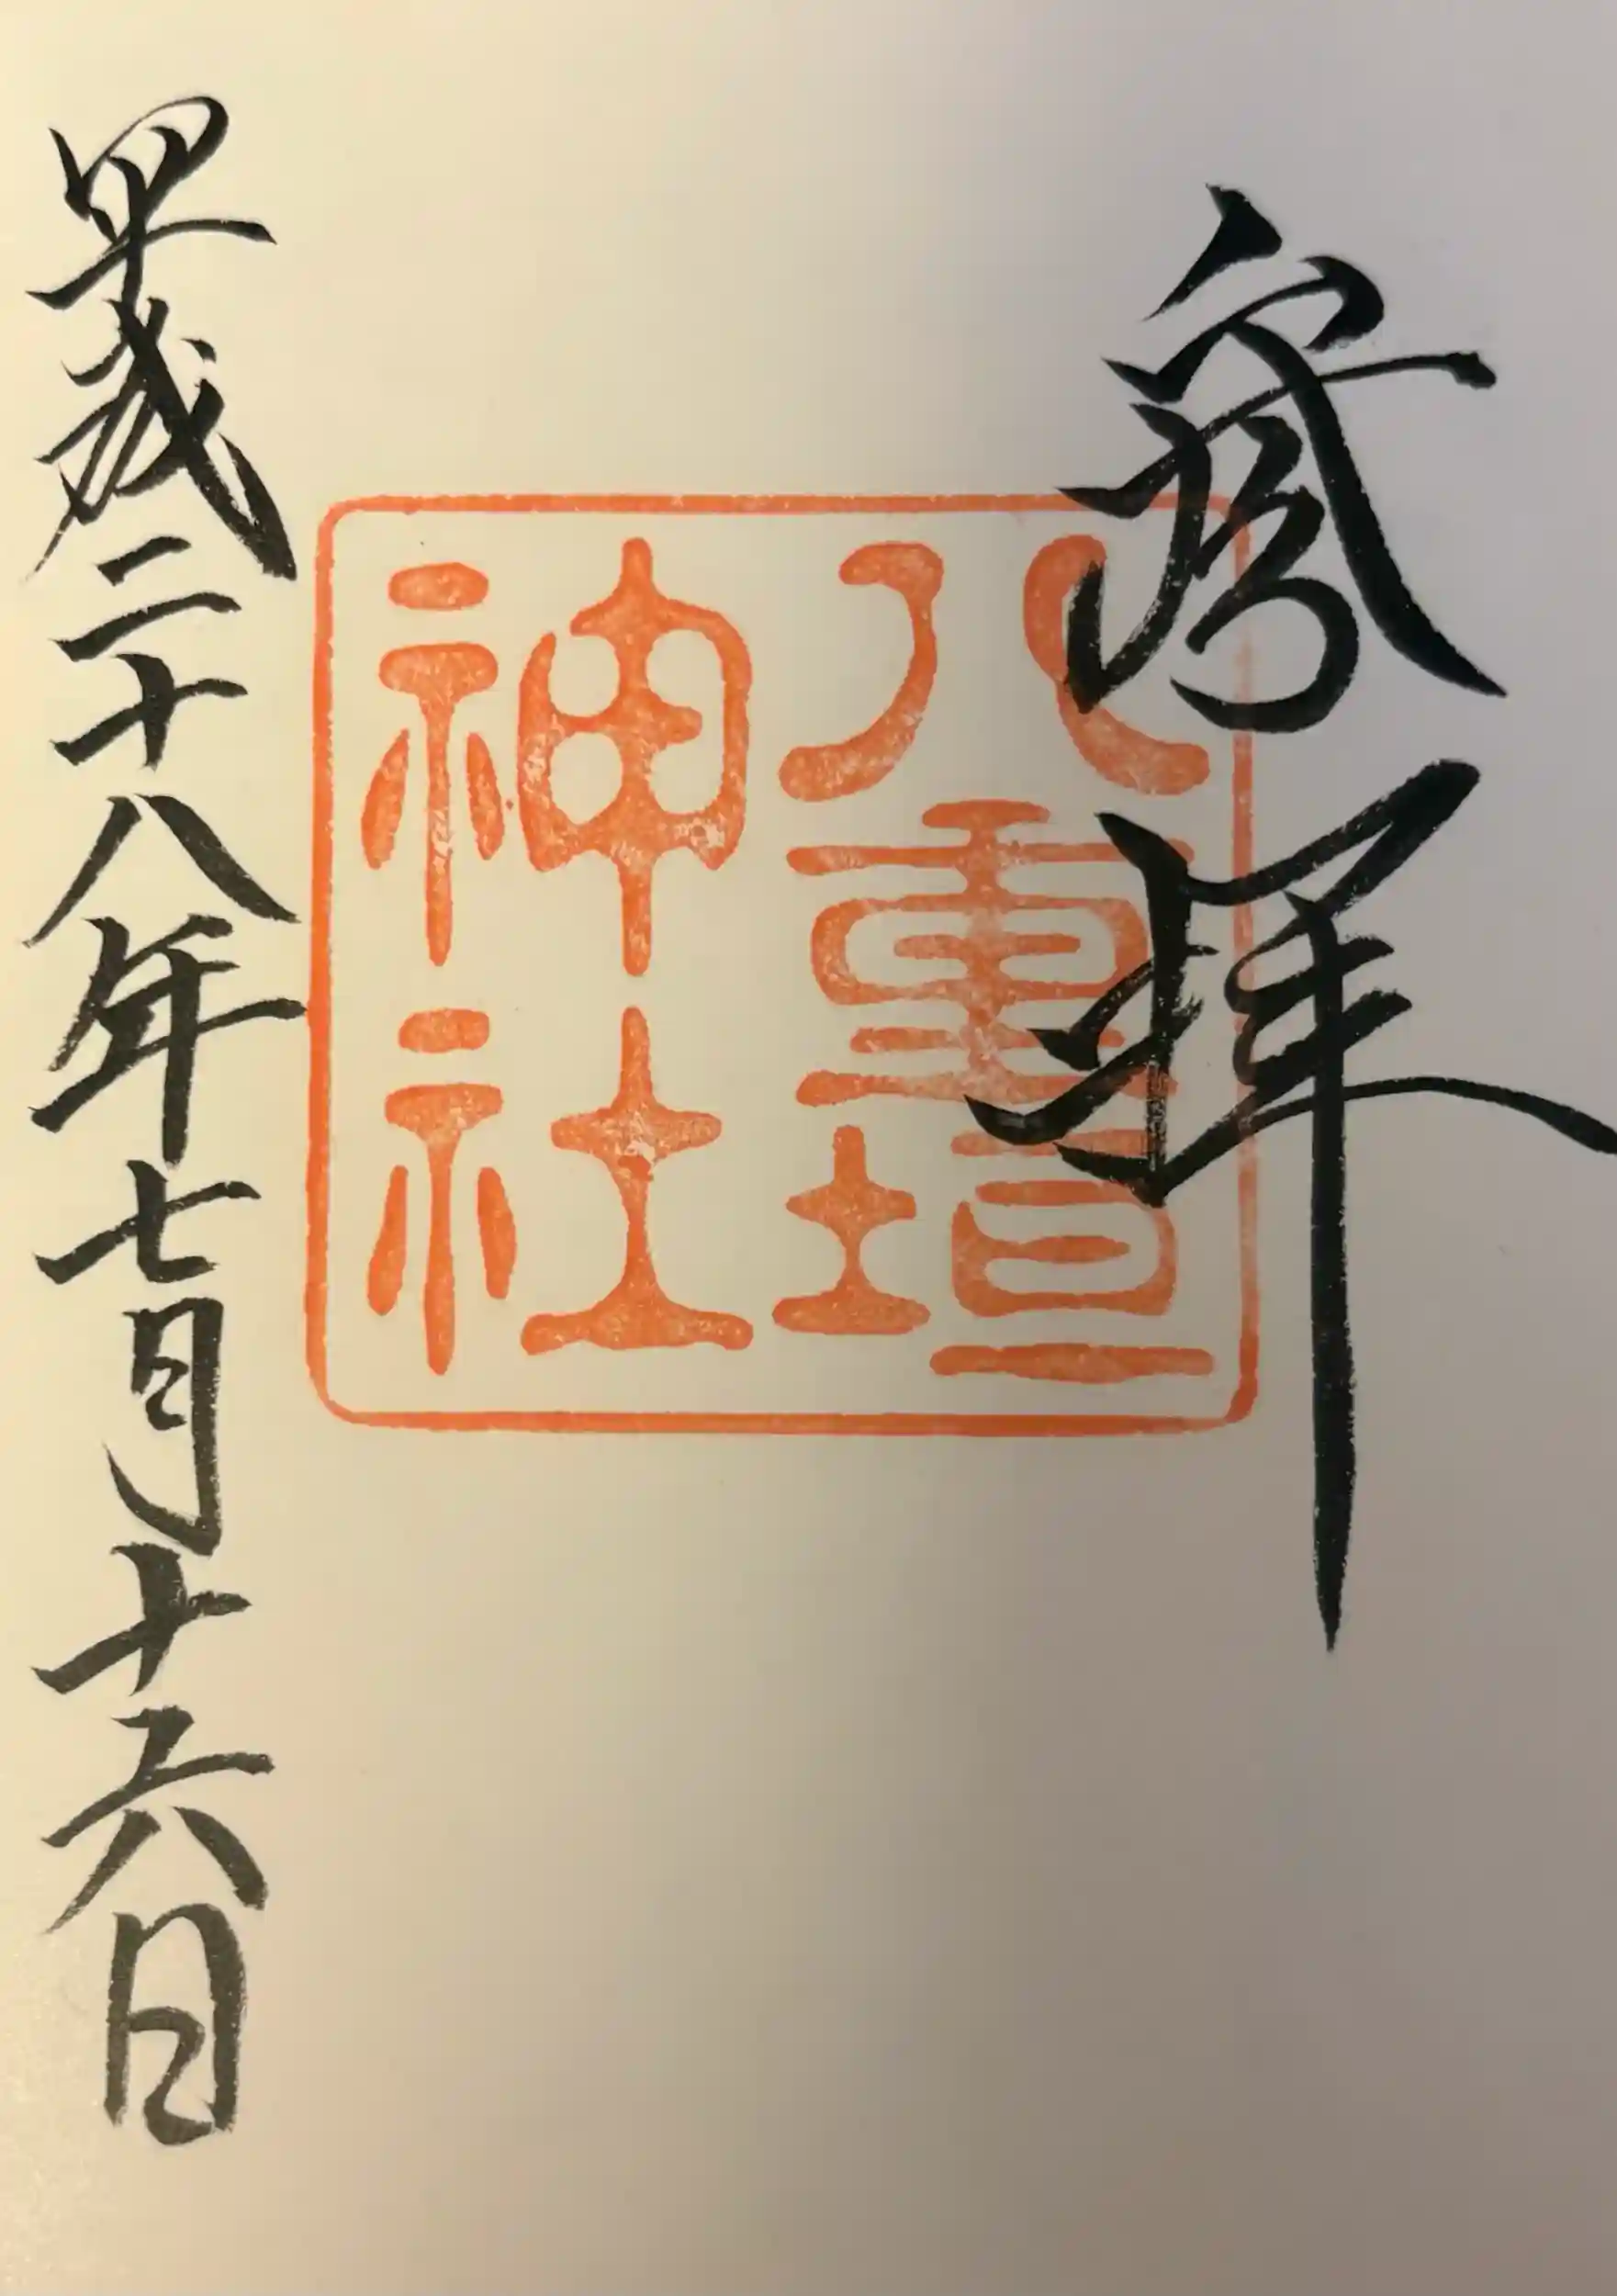 参拝
八重垣
神社
平成二十八年七月十六日